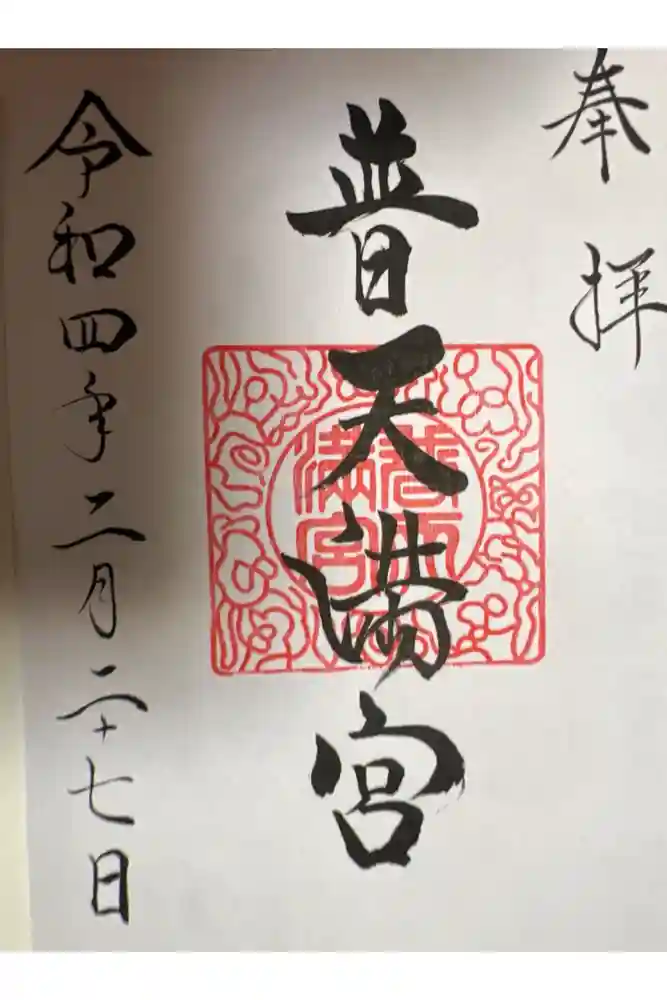 奉拝
普天満宮
普天満宮
令和四年二月二十七日